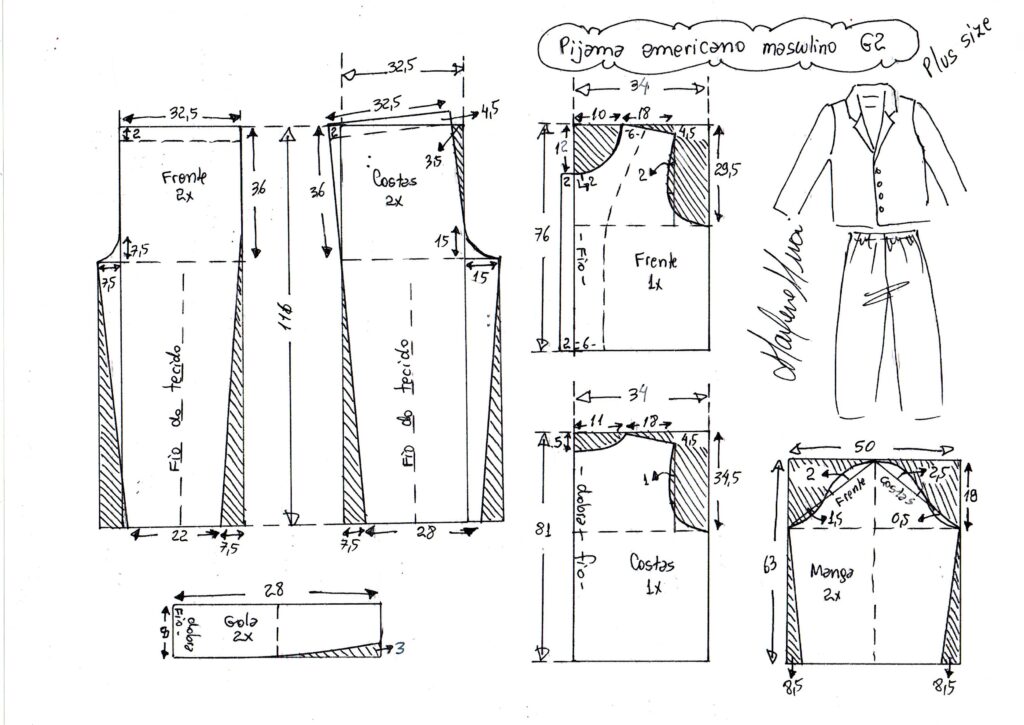 Pijama americano masculino G2
Plus size
32,5
2
Frente
2x
36
7,5
7,5
Fio do tecido
22
7,5
116
32,5
32,5
4,5
2
3,5
Costas
2x
36
15
15
Fio do tecido
7,5
28
34
10
18
12
6
4,5
2
29,5
2
2
76
- Fio -
Frente
1x
2
-6-
34
11
18
.5
4,5
1
34,5
81
- dobra - fio -
Costas
1x
50
2
2,5
Frente
Costas
18
1,5
0,5
63
Manga
2x
8,5
8,5
28
8
Fio -
dobra
Gola
2x
3
Marlene Mukai